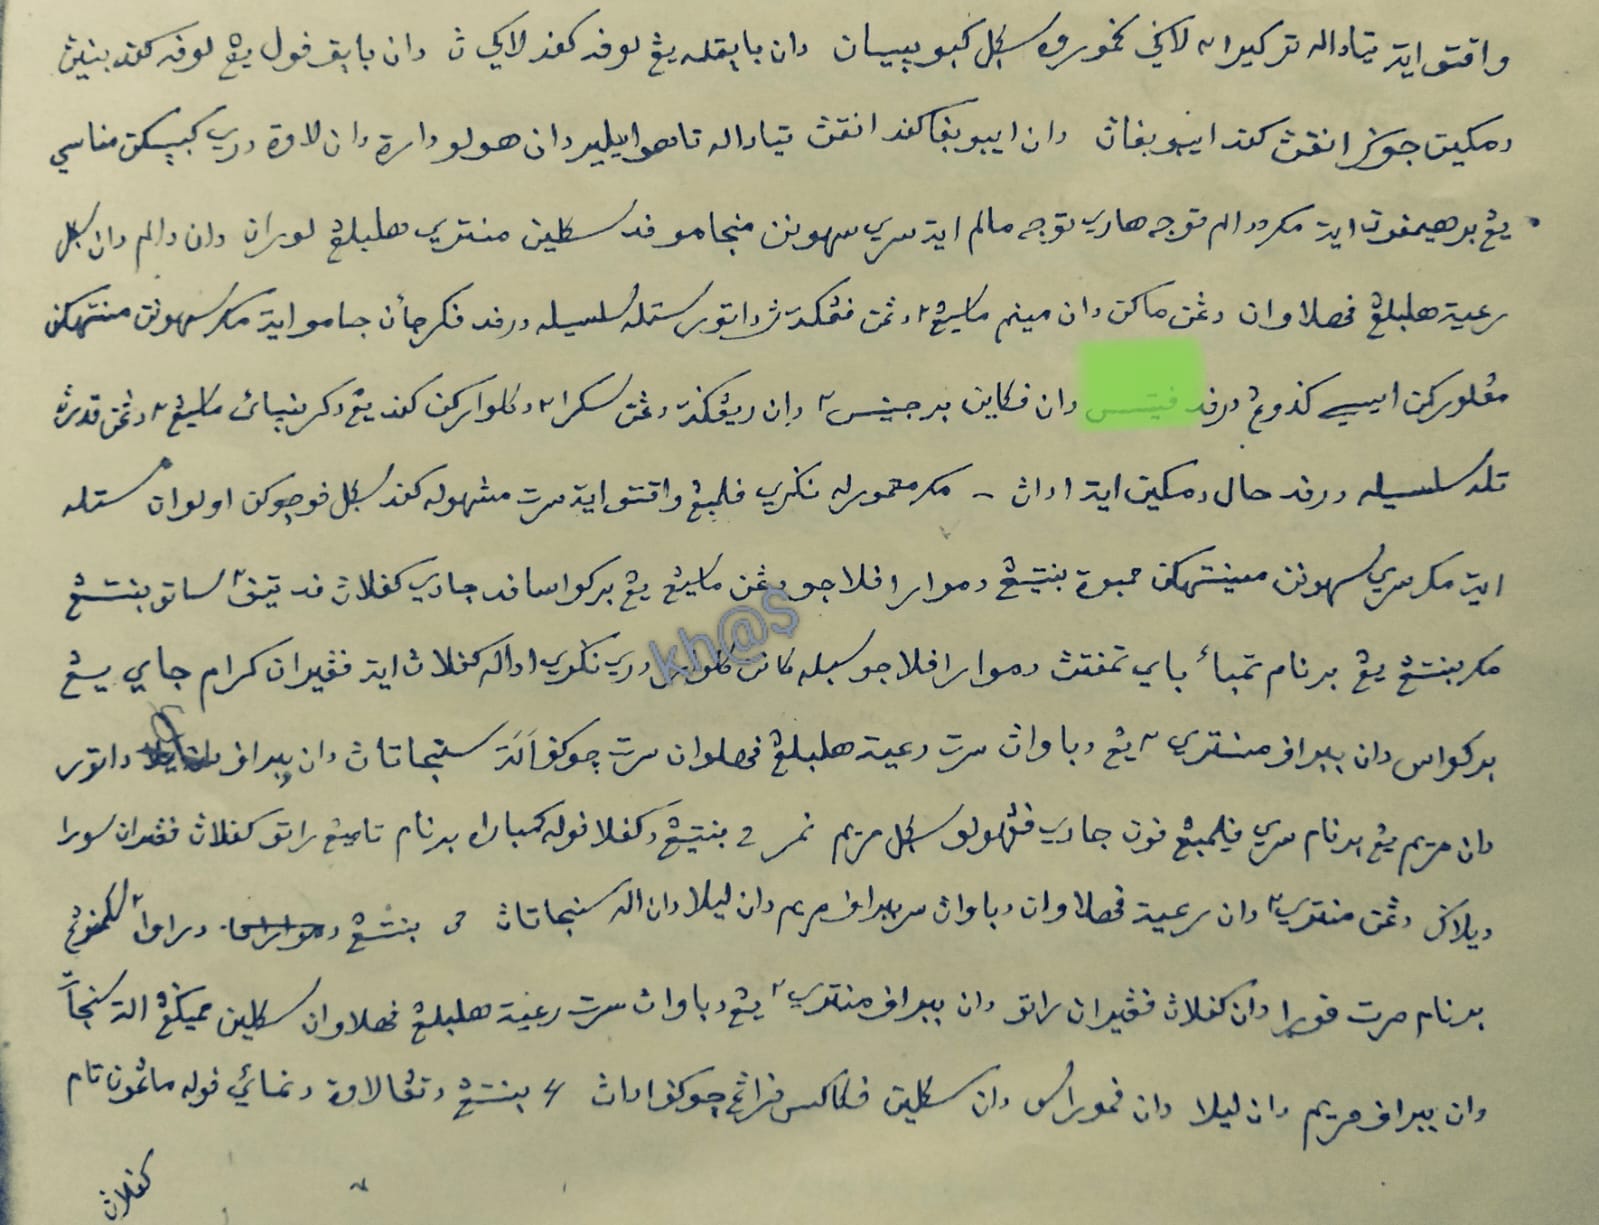 واقتو ايت تياداله تركيرا٢ لاڬي سڬل بوپيان دان باپقله يڠ لوڤ كڤد لاكي ث دان باپق ڤول يڠ لوڤ كڤد بنيڽ
دمكين جوڬ انقڽ كڤد ايبو بڤاڽ دان ايبو بڤا كڤد انقڽ تياداله تاهو ايلير دان هولو دارة دان لاوة دري كبيسكن
يڠ برهيمڤون ايت مک دالم توجه هاري توجه مالم ايت سري سهونن منجامو ڤد سكلين منتري هلبلڠ لوران دان دالم دان سڬل
رعية هلبلڠ ڤهلاوان دڠن ماكن دان مينم ماسيڠ٢ دڠن ڤڠكتڽ داتور ستله سلسيله درڤد ڤكرجأن جامو ايت مک سهونن منتهكن
مڠلوركن ايسي ڬدوڠ درڤد ڤيتيس دان ڤكاين برجنيس٢ دان ريڠڬت دڠن سكرا٢ دكلواركن كڤد يڠ دكرنيائ ماسيڠ٢ دڠن قدرڽ
تله سلسيله درڤد حال دمكين ايت اداڽ - مک معمورله نڬري ڤلمبڠ واقتو ايت سرت مشهوله كڤد سڬل ڤوجوكن اولوان ستله
ايت مک سري سهونن مينتهكن ممبوة بنتيڠ دموارا ڤلاجو دڠن ماسيڠ يڠ بركواسا ڤد جادي كڤلاڽ ڤد تيڤ٢ ساتو بنتيڠ
مک بنتڠ يڠ برنام تمبأ باي تمڤتڽ دموارا ڤلاجو سبله كانن كلوار دري نڬري اداله كڤلاڽ ايت ڤڠيران كرام جاي يڠ
kh@s
بركواس دان ببراڤ منتري٢ يڠ دباواڽ سرت رعية هلبلڠ ڤهلوان سرت چوكڤ الة سنجاتاڽ دان ببراڤ داتور
دان مريم يڠ برنام سري ڤلمبڠ ڤون جادي ڤڠهولو سڬل مريم نمر 2 بنتيڠ دكڤلا ڤوله كمبارا برنام تامبڠ راتو كڤلاڽ ڤڠيران سورا
ديلاڬ دڠن منتري٢ دان رعية ڤهلاوان دباواڽ سرت ببراڤ مريم دان ليلا دان اله سنجاتاڽ 3 بنتڠ دراوا٢
برنام مرت ڤورا دان كڤلاڽ ڤڠيران راتو دان ببراڤ منتري٢ يڠ دباواڽ سرت رعية هلبلڠ ڤهلاوان سكلين الة سنجاتا
دان ببراڤ مريم دان ليلا دان ڤموراس دان سكلين ڤكاكس ڤراڠ چوكڤ اداڽ 4 بنتڠ دتڠا لاوة دنمائي ڤوله ماڠون تام
كڤلاڽ